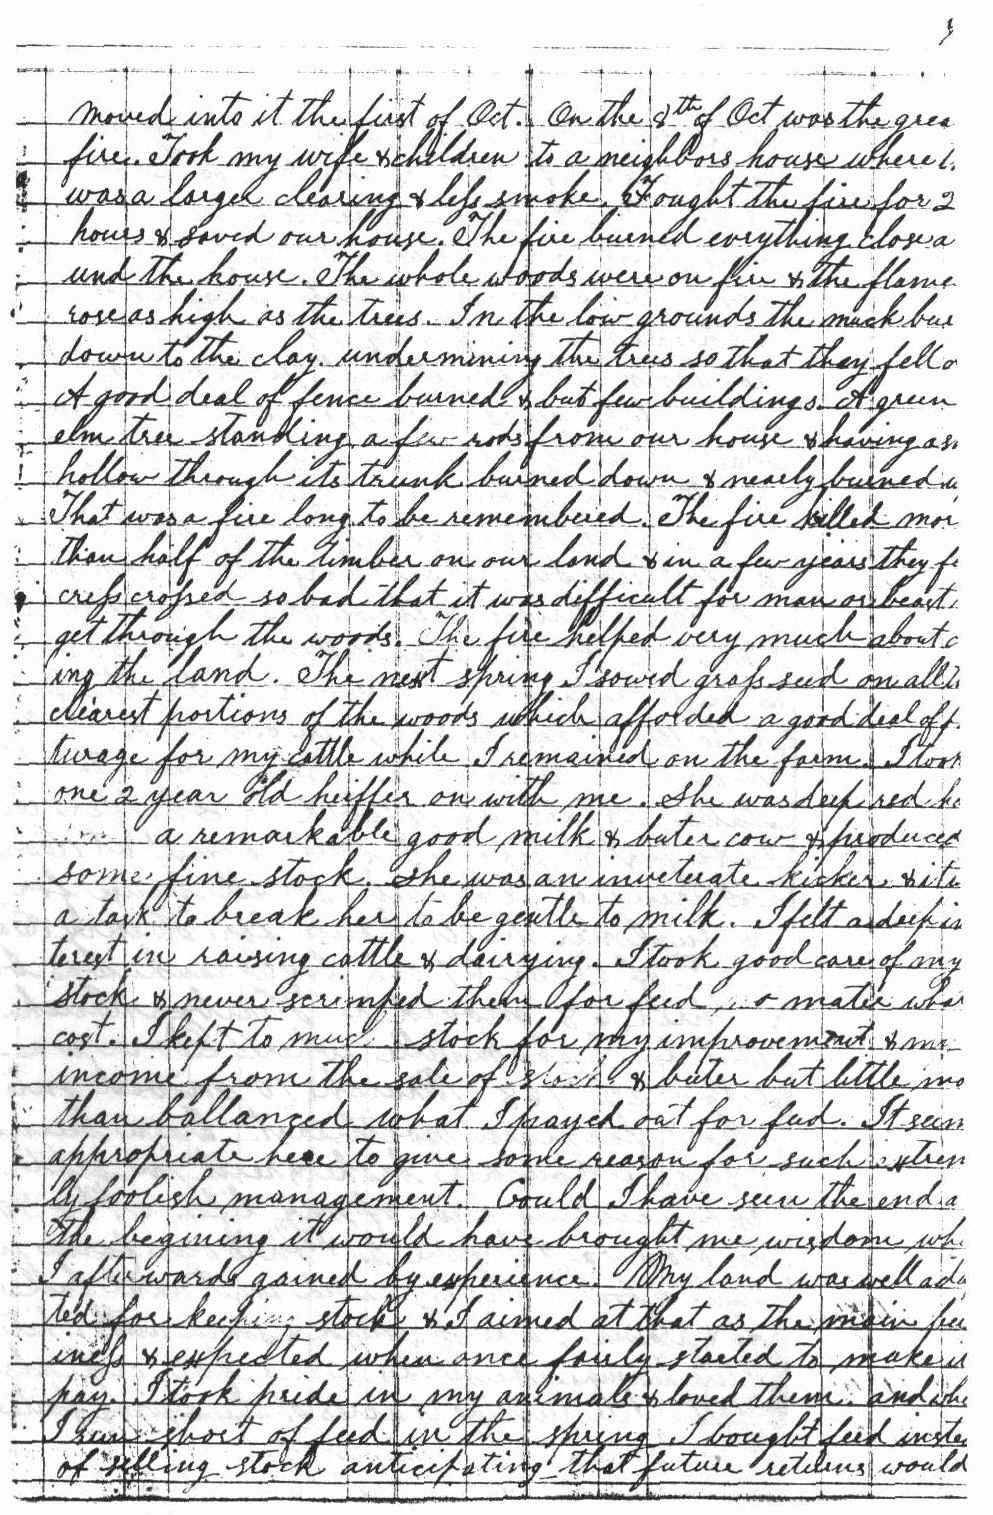 moved into it the first of Oct. On the 8th of Oct was the grea
fire. Took my wife & children to a neighbors house where
was a larger clearing & less smoke. Fought the fire for 2
hours & saved our house. The fire burned evrything close a
und the house. The whole woods were on fire & the flame
rose as high as the trees. In the low grounds the muck bur
down to the clay undermining the trees so that they fell o
A good deal of fence burned & but few buildings. A green
elm tree standing a few rods from our house & having a sm
hollow through its trunk burned down & nearly burned u
That was a fire long to be remembered. The fire killed mor
than half of the timber on our land & in a few years they fe
cress crossed so bad that it was difficult for man or beast
get through the woods. The fire helped very much about c
ing the land. The next spring I sowed grass seed on all
clearest portions of the woods which afforded a good deal of p
turage for my cattle while I remained on the farm. I took
one 2 year old heiffer on with me. She was deep red
a remarkable good milk & buter cow & produced
some fine stock. She was an inveterate kicker & it
a task to break her to be gentle to milk. I felt a deep in
terest in raising cattle & dairying. I took good care of my
stock & never scrimped them for feed mater what
cost. I kept to muc stock for my improvement & my
income from the sale of stock & buter but little mo
than ballanced what I payed out for feed. It seem
appropriate here to give some reason for such extrem
ly foolish management. Could I have seen the end a
the begining it would have brought me wisdom wh
I afterwards gained by experience. My land was well ada
ted for keeping stock & I aimed at that as the main bu
iness & expected when once fairly started to make it
pay. I took pride in my animals & loved them. and whe
I run short of feed in the spring I bought feed inste
of selling stock anticipating that future returns would